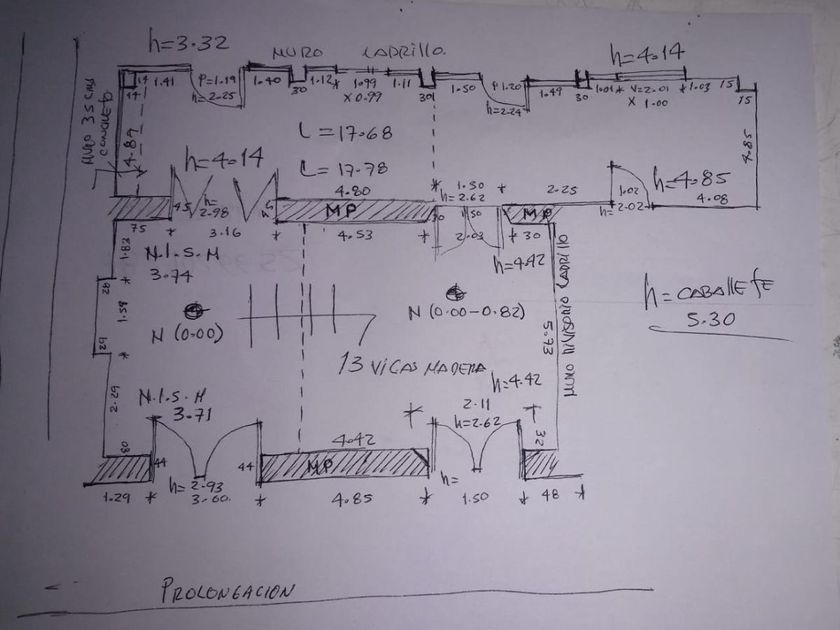 h=3.32
MURO LADRILLO.
h=4.14
14
14
1.41
P=1.19
h=2.25
1.40
30
1.12
1.99
X 0.99
1.11
30
1.50
P 1.20
h=2.24
1.49
30
1.01
V=2.01
X 1.00
1.03
15
15
MURO 35 cms
4.89
L=17.68
L=17.78
h=4.14
4.85
h=4.85
4.80
1.50
h=2.62
2.25
1.02
h=2.02
4.08
45
h=
2.98
MP
1.50
MP
75
3.16
4.53
2.03
30
1.83
N.I.S.M
3.74
h=4.42
MURO MEDIANERO LADRILLO
h=CABALLETE
5.30
1.58
N (0.00)
N (0.00-0.82)
5.73
13 VIGAS MADERA
2.29
N.I.S.M
3.71
h=4.42
2.11
h=2.62
4.42
32
80
44
44
MP
h=
2.93
h=
1.29
3.00
4.85
1.50
48
PROLONGACION